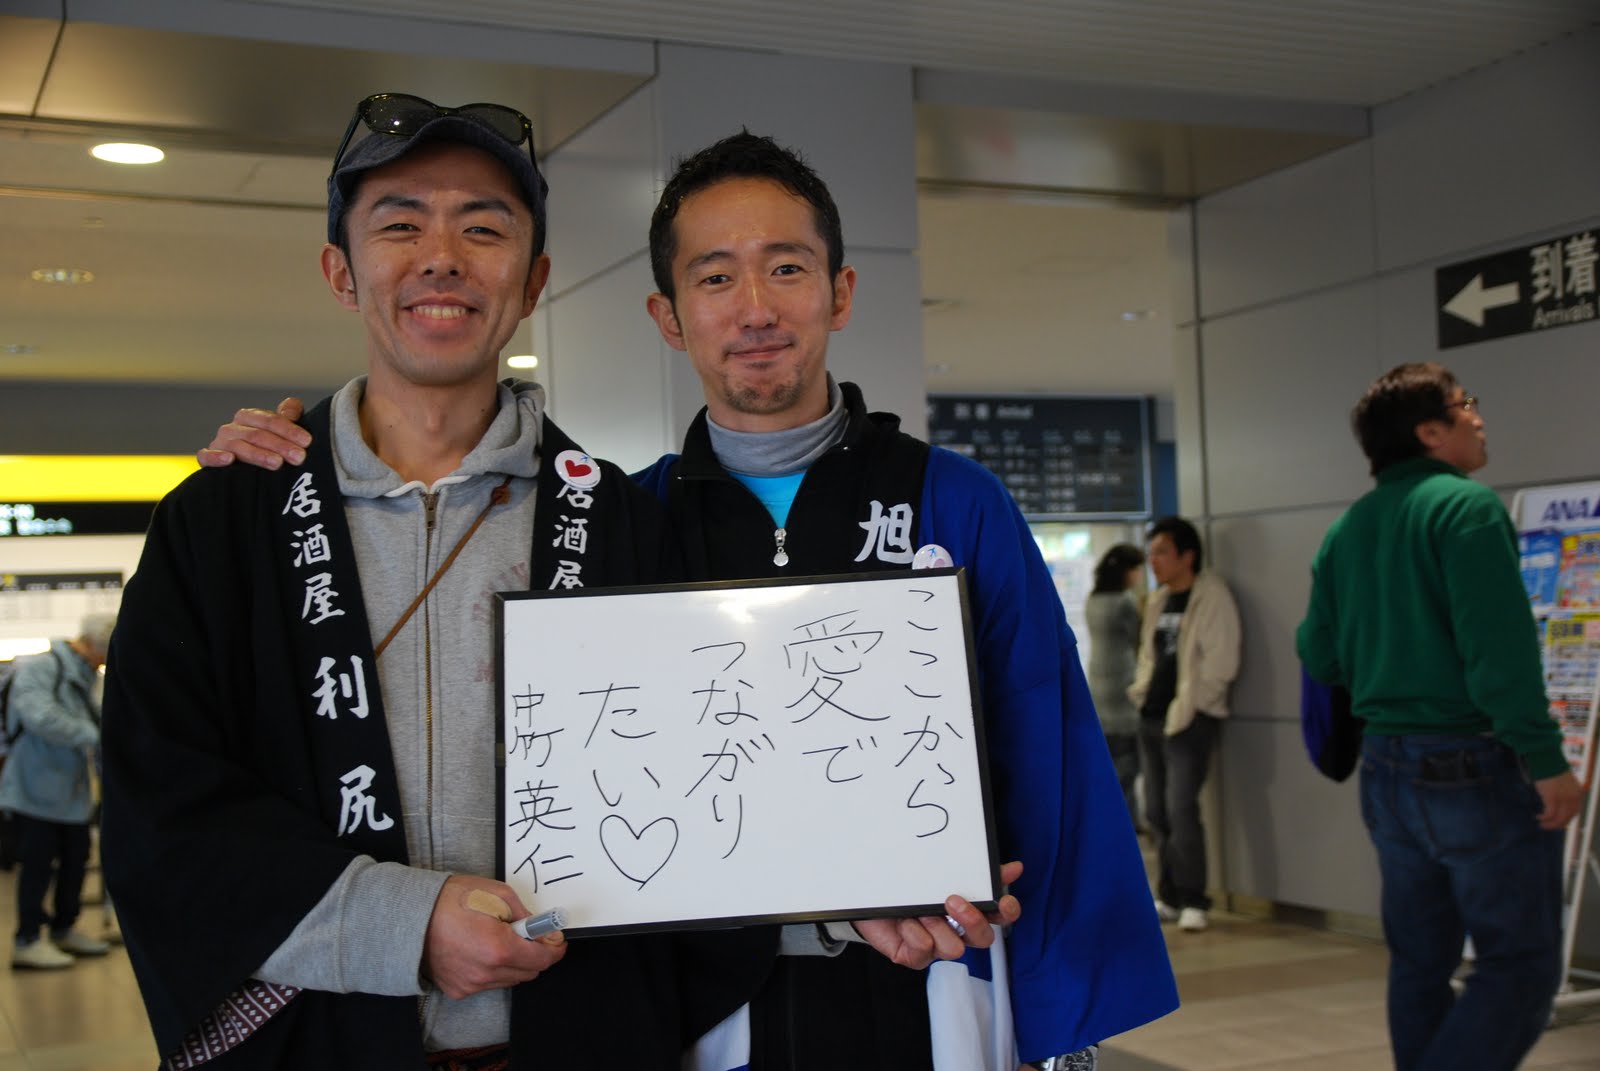 ここから
愛で
つながり
たい♡
中竹英仁
居酒屋 利尻
居酒屋
旭
到着
Arrivals
到着 Arrival
ANA